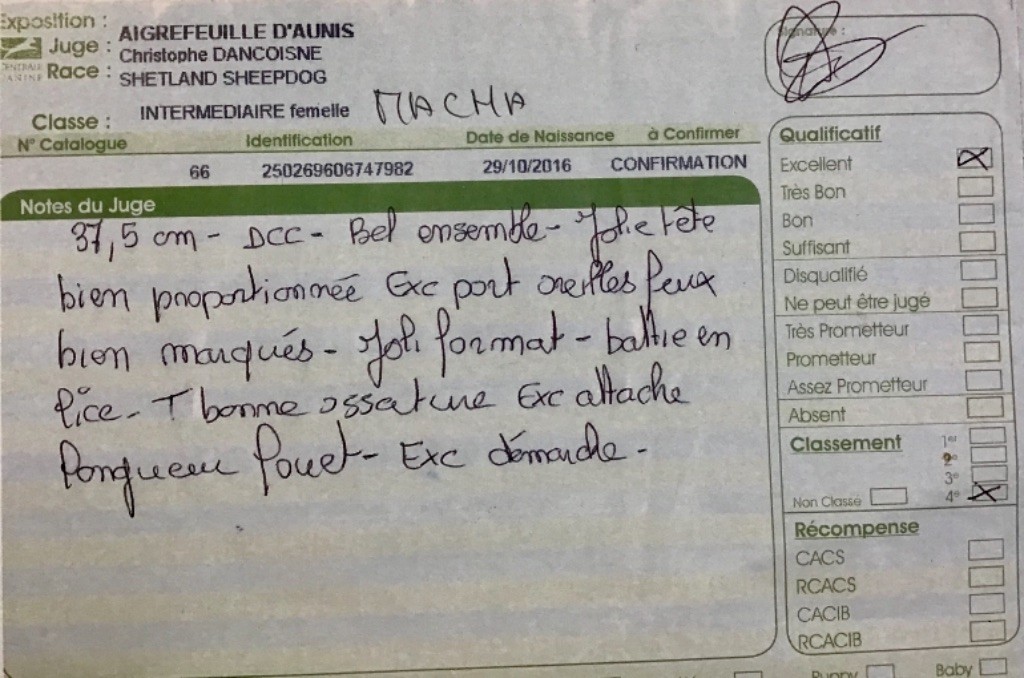 Exposition : AIGREFEUILLE D'AUNIS
Juge : Christophe DANCOISNE
Race : SHETLAND SHEEPDOG
Classe : INTERMEDIAIRE femelle MACHA
N° Catalogue Identification Date de Naissance à Confirmer
66 250269606747982 29/10/2016 CONFIRMATION
Notes du Juge
37,5 cm - DCC - Bel ensemble - Jolie tête
bien proportionnée Exc port oreilles feux
bien marqués - Joli format - battie en
lice - T bonne ossature Exc attache
longueur fouet - Exc démarche -
Signature :
Qualificatif
Excellent
Très Bon
Bon
Suffisant
Disqualifié
Ne peut être jugé
Très Prometteur
Prometteur
Assez Prometteur
Absent
Classement 1er
2e
3e
Non Classé 4e
Récompense
CACS
RCACS
CACIB
RCACIB
Puppy Baby